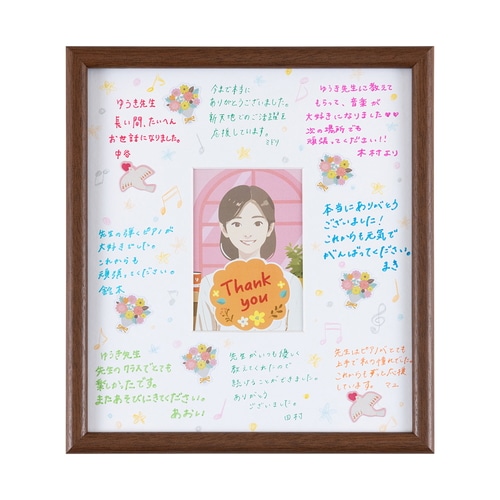 ゆうき先生
長い間、たいへん
お世話になりました。
中谷
今まで本当に
ありがとうございました。
新天地でのご活躍を
応援しています。
ミドリ
ゆうき先生に教えて
もらって、音楽が
大好きになりました♥♥
次の場所でも
頑張ってください!!
木村より
先生の弾くピアノが
大好きでした。
これからも
頑張ってください。
鈴木
Thank
you
本当にありがとう
ございました!
これからも元気で
がんばってください。
まき
ゆうき先生
先生のクラスでとても
楽しかったです。
またあそびにきてください。
あおい
先生がいつも優しく
教えてくれたので
続けることができました。
ありがとう
ございました。
田村
先生はピアノがとても
上手で私の憧れでした。
これからもずっと応援
しています。マユ